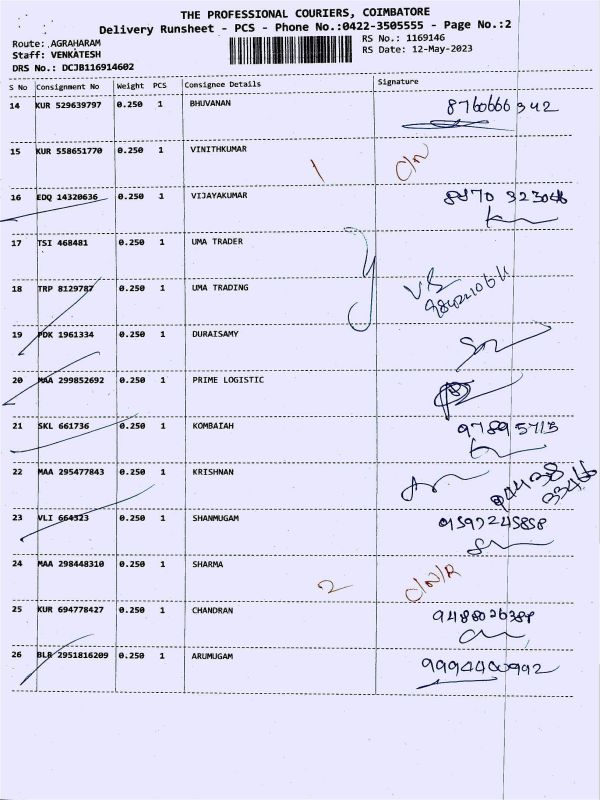 THE PROFESSIONAL COURIERS, COIMBATORE
Delivery Runsheet - PCS - Phone No.:0422-3505555 - Page No.:2
Route: AGRAHARAM RS No.: 1169146
Staff: VENKATESH RS Date: 12-May-2023
DRS No.: DCJB116914602
S No Consignment No Weight PCS Consignee Details Signature
14 KUR 529639797 0.250 1 BHUVANAN 8760666342
15 KUR 558651770 0.250 1 VINITHKUMAR 1
16 EDQ 14320636 0.250 1 VIJAYAKUMAR 8870 323046
17 TSI 468481 0.250 1 UMA TRADER
18 TRP 8129787 0.250 1 UMA TRADING
19 PDK 1961334 0.250 1 DURAISAMY
20 MAA 299852692 0.250 1 PRIME LOGISTIC
21 SKL 661736 0.250 1 KOMBAIAH
22 MAA 295477843 0.250 1 KRISHNAN
23 VLI 664323 0.250 1 SHANMUGAM
24 MAA 298448310 0.250 1 SHARMA 2 C/N/R
25 KUR 694778427 0.250 1 CHANDRAN 9488026388
26 BLR 2951816209 0.250 1 ARUMUGAM 9994400992